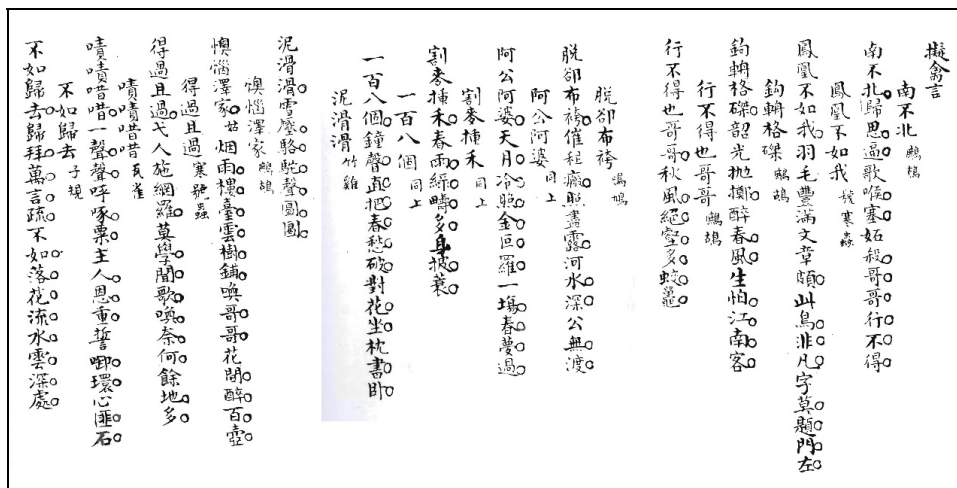 擬禽言
南不北 鷓鴣
南不北歸思逼歌喉塞妬殺哥哥行不得
鳳凰不如我 寒號蟲
鳳凰不如我羽毛豐滿文章頗此鳥非凡字莫題門左
鉤輈格磔 鷓鴣
鉤輈格磔韶光拋擲醉春風生怕江南客
行不得也哥哥 鷓鴣
行不得也哥哥秋風絕壑多蛟鼉
脫卻布袴 鳲鳩
脫卻布袴催租癜照盡露河水深公無渡
阿公阿婆 同上
阿公阿婆天月冷照金叵羅一場春夢過
割麥插禾 同上
割麥插禾春雨綠疇多身披蓑
一百八個 同上
一百八個鐘聲直把春愁破對花坐枕書臥
泥滑滑 竹雞
泥滑滑雪壓駱駝聲圖圖
懊惱澤家 鷓鴣
懊惱澤家姑烟雨樓臺雲樹鋪喚哥哥花間醉百壺
得過且過 寒號蟲
得過且過弋人施網羅莫學閒歌喚奈何餘地多
嘖嘖唶唶 瓦雀
嘖嘖唶唶一聲聲呼啄粟主人恩重誓啣環心匪石
不如歸去 子規
不如歸去歸拜萬言疏不如落花流水雲深處